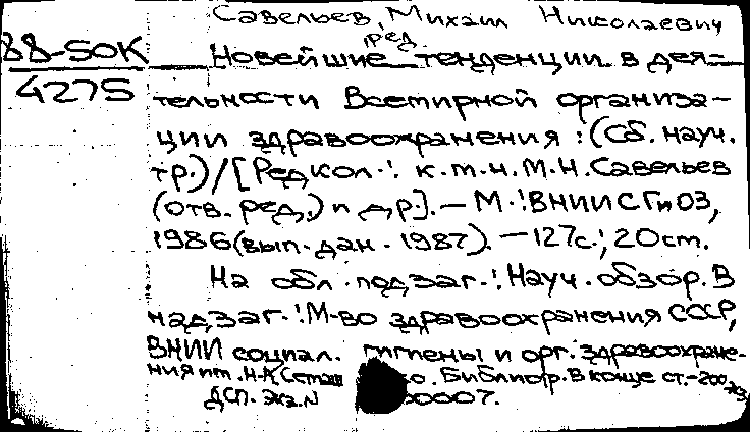 Савельев, Михаил Николаевич
ред.
88-50К
4275
Новейшие тенденции в дея=
тельности Всемирной организа-
ции здравоохранения : (Сб. науч.
тр.) / [Редкол.: к.т.н. М.Н. Савельев
(отв. ред.) и др.]. — М.: ВНИИСГиОЗ,
1986 (вып. дан. 1987). — 127с.; 20см.
На обл. подзаг.: Науч. обзор. В
надзаг.: М-во здравоохранения СССР,
ВНИИ социал. гигиены и орг. здравоохране-
ния им. Н.А. Библиогр. в конце ст. - 200 экз.
ДСП. Экз. N 00007.